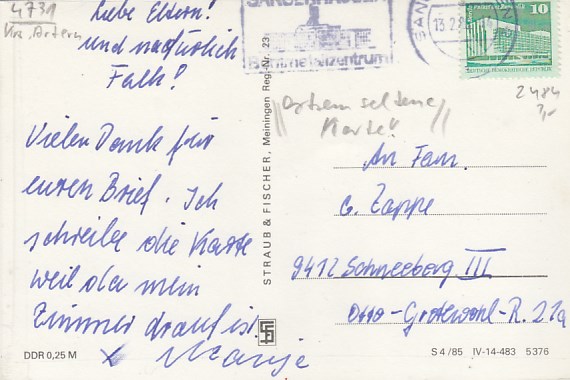 4731
Krs. Artern
Liebe Eltern!
und natürlich
Falk!
Vielen Dank für
euren Brief. Ich
schreibe die Karte
weil da mein
Zimmer drauf ist.
x Manje
DDR 0,25 M
STRAUB & FISCHER, Meiningen Reg.-Nr. 23
SANGERHAUSEN
SAN
13.2.8
10
DEUTSCHE DEMOKRATISCHE REPUBLIK
2484
3,-
"extrem seltene
Karte"
An Fam.
G. Zappe
9412 Schneeberg III
Otto-Grotewohl-R. 21a
S 4/85 IV-14-483 5376